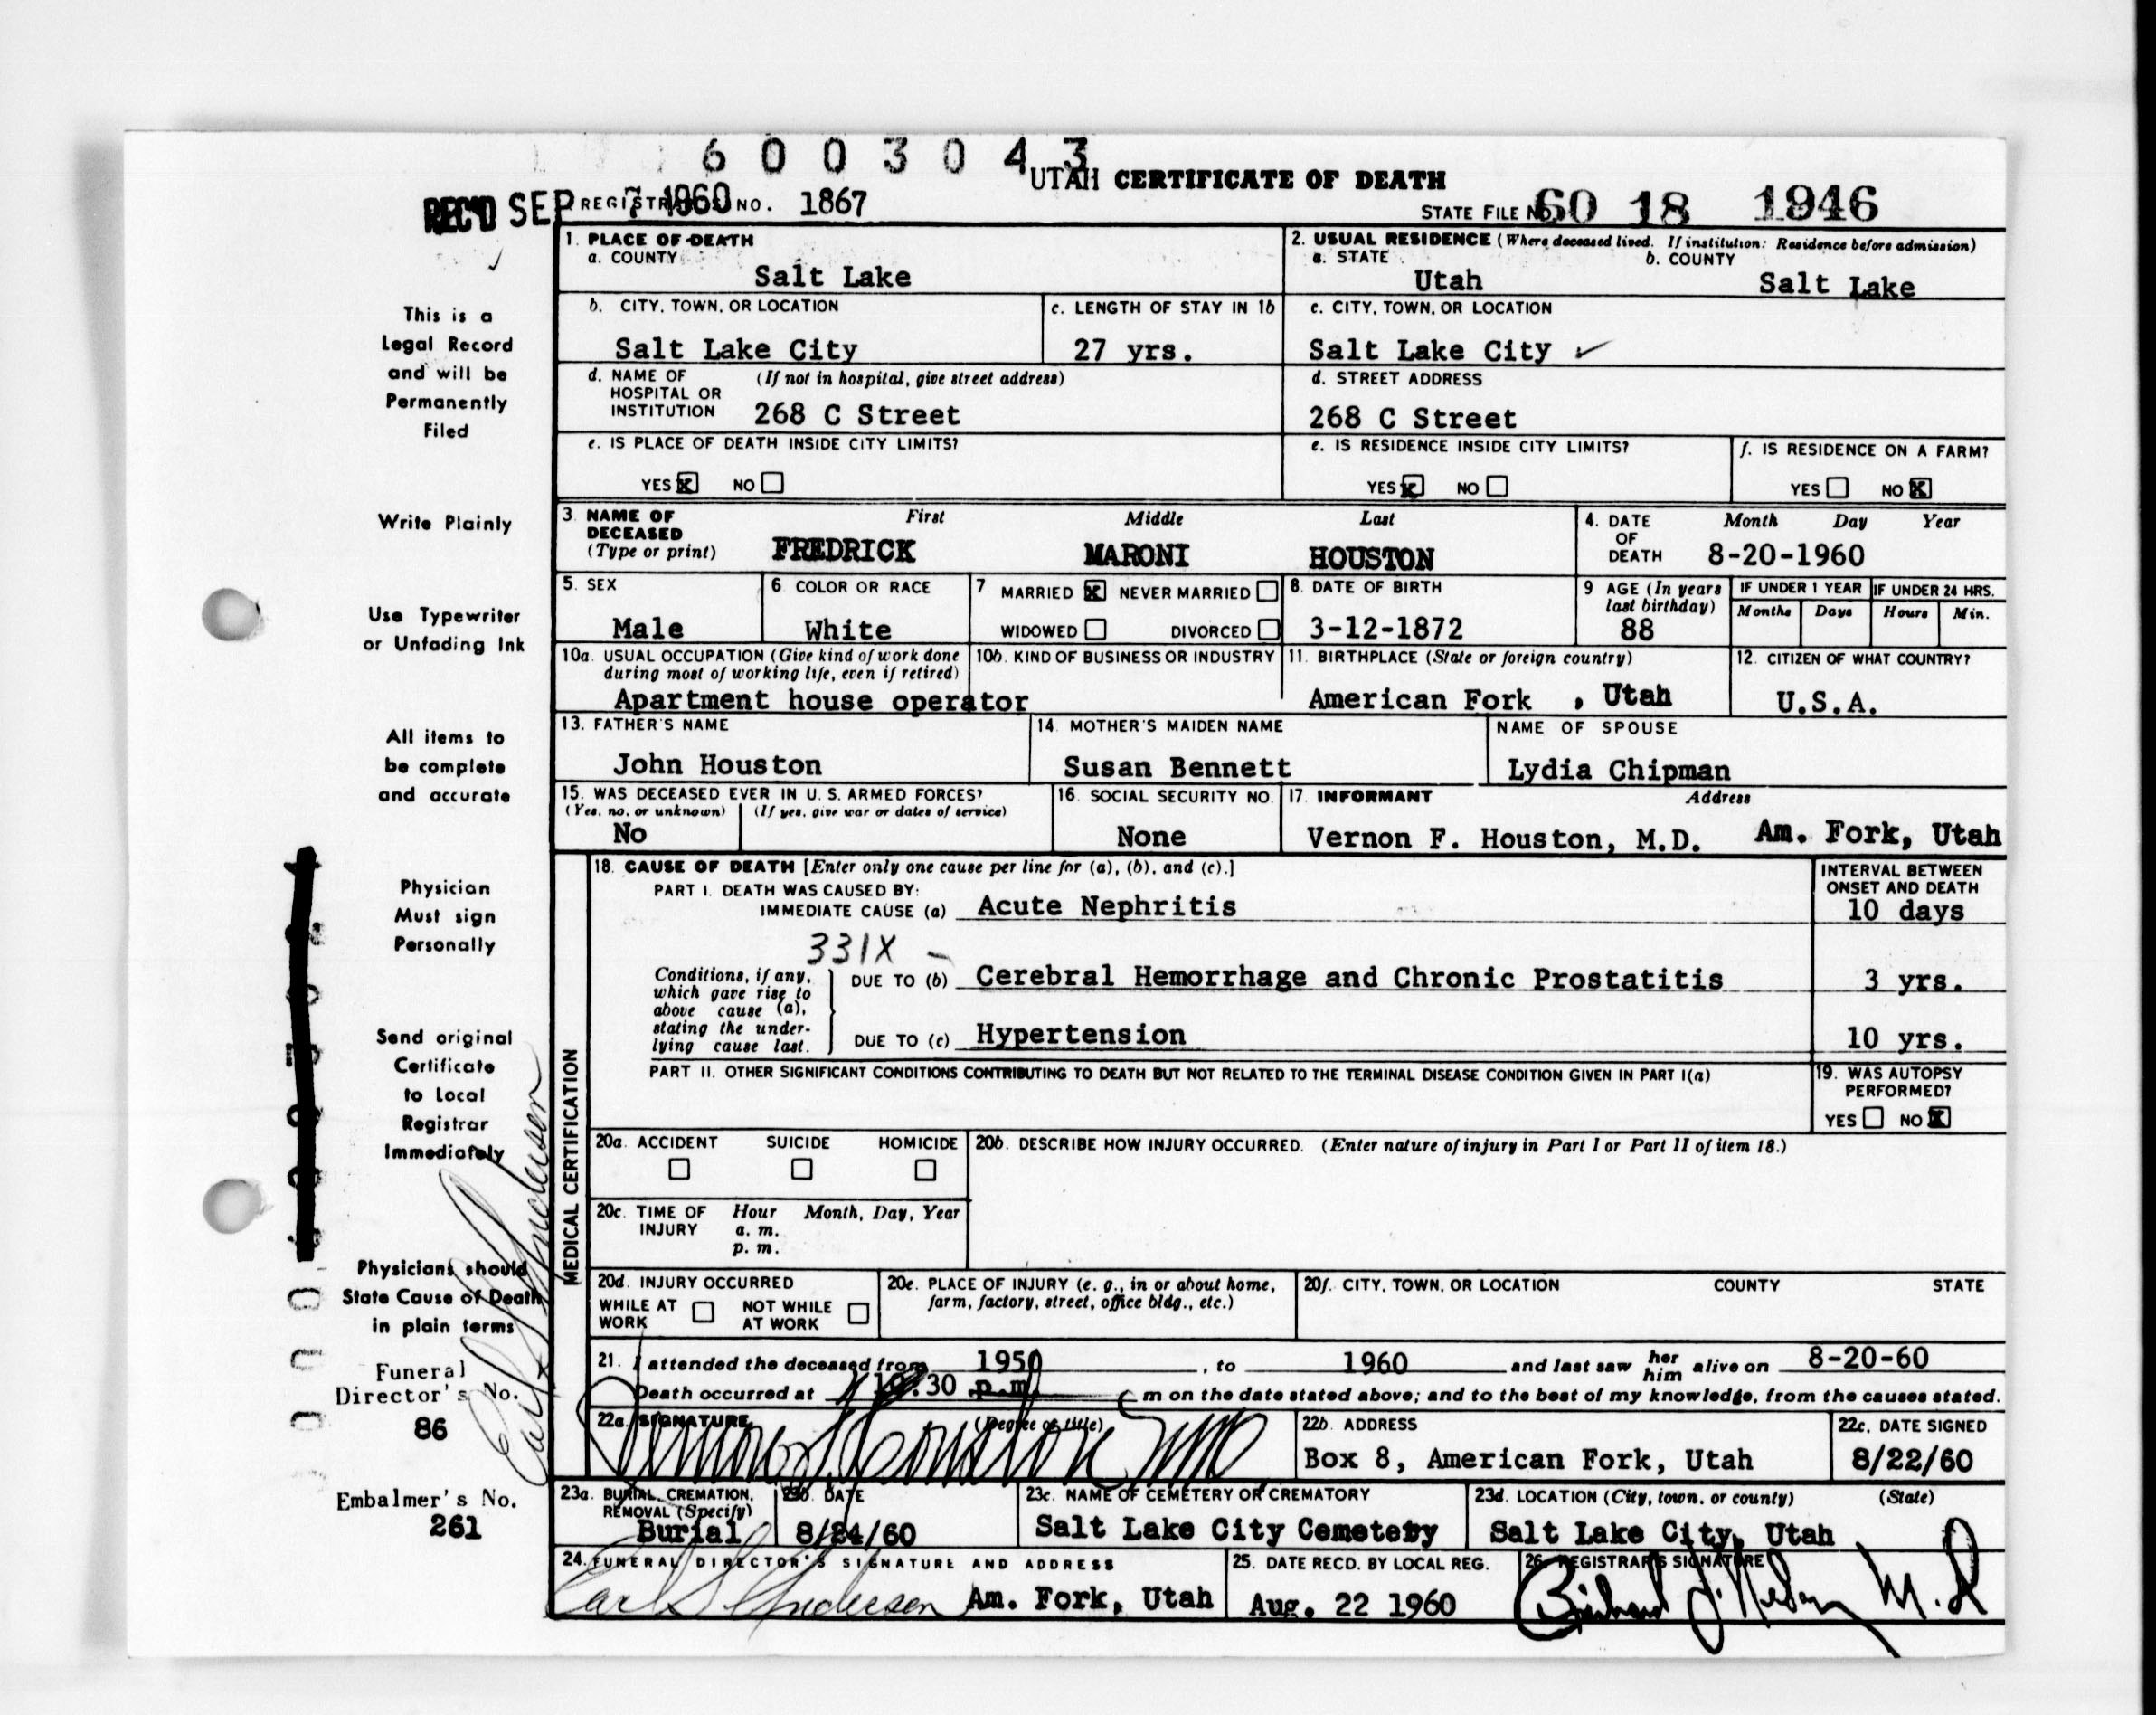 6 0 0 3 0 4 3
UTAH CERTIFICATE OF DEATH
REC'D SEP 7 1960 REGISTRAR'S NO. 1867
STATE FILE NO. 60 18 1946
1. PLACE OF DEATH
a. COUNTY
Salt Lake
2. USUAL RESIDENCE (Where deceased lived. If institution: Residence before admission)
a. STATE b. COUNTY
Utah Salt Lake
b. CITY, TOWN, OR LOCATION
Salt Lake City
c. LENGTH OF STAY IN 1b
27 yrs.
c. CITY, TOWN, OR LOCATION
Salt Lake City
d. NAME OF HOSPITAL OR INSTITUTION (If not in hospital, give street address)
268 C Street
d. STREET ADDRESS
268 C Street
e. IS PLACE OF DEATH INSIDE CITY LIMITS?
YES X NO
e. IS RESIDENCE INSIDE CITY LIMITS?
YES X NO
f. IS RESIDENCE ON A FARM?
YES NO X
3. NAME OF DECEASED (Type or print)
First Middle Last
FREDRICK MARONI HOUSTON
4. DATE OF DEATH Month Day Year
8-20-1960
5. SEX
Male
6 COLOR OR RACE
White
7 MARRIED X NEVER MARRIED
WIDOWED DIVORCED
8. DATE OF BIRTH
3-12-1872
9 AGE (In years last birthday)
88
IF UNDER 1 YEAR IF UNDER 24 HRS.
Months Days Hours Min.
10a. USUAL OCCUPATION (Give kind of work done during most of working life, even if retired)
Apartment house operator
10b. KIND OF BUSINESS OR INDUSTRY
11. BIRTHPLACE (State or foreign country)
American Fork , Utah
12. CITIZEN OF WHAT COUNTRY?
U.S.A.
13. FATHER'S NAME
John Houston
14. MOTHER'S MAIDEN NAME
Susan Bennett
NAME OF SPOUSE
Lydia Chipman
15. WAS DECEASED EVER IN U. S. ARMED FORCES?
(Yes, no, or unknown) (If yes, give war or dates of service)
No
16. SOCIAL SECURITY NO.
None
17. INFORMANT Address
Vernon F. Houston, M.D. Am. Fork, Utah
MEDICAL CERTIFICATION
18. CAUSE OF DEATH [Enter only one cause per line for (a), (b), and (c).]
PART I. DEATH WAS CAUSED BY:
IMMEDIATE CAUSE (a) Acute Nephritis
INTERVAL BETWEEN ONSET AND DEATH
10 days
331X
Conditions, if any, which gave rise to above cause (a), stating the underlying cause last.
DUE TO (b) Cerebral Hemorrhage and Chronic Prostatitis 3 yrs.
DUE TO (c) Hypertension 10 yrs.
PART II. OTHER SIGNIFICANT CONDITIONS CONTRIBUTING TO DEATH BUT NOT RELATED TO THE TERMINAL DISEASE CONDITION GIVEN IN PART I(a)
19. WAS AUTOPSY PERFORMED?
YES NO X
20a. ACCIDENT SUICIDE HOMICIDE
20b. DESCRIBE HOW INJURY OCCURRED. (Enter nature of injury in Part I or Part II of item 18.)
20c. TIME OF INJURY Hour Month, Day, Year
a. m.
p. m.
20d. INJURY OCCURRED
WHILE AT WORK NOT WHILE AT WORK
20e. PLACE OF INJURY (e. g., in or about home, farm, factory, street, office bldg., etc.)
20f. CITY, TOWN, OR LOCATION COUNTY STATE
21. I attended the deceased from 1950 , to 1960 and last saw her him alive on 8-20-60
Death occurred at 10:30 p.m. m on the date stated above; and to the best of my knowledge, from the causes stated.
22a. SIGNATURE (Degree or title)
Vernon F. Houston MD
22b. ADDRESS
Box 8, American Fork, Utah
22c. DATE SIGNED
8/22/60
23a. BURIAL, CREMATION, REMOVAL (Specify)
Burial
23b. DATE
8/24/60
23c. NAME OF CEMETERY OR CREMATORY
Salt Lake City Cemetery
23d. LOCATION (City, town, or county) (State)
Salt Lake City, Utah
24. FUNERAL DIRECTOR'S SIGNATURE AND ADDRESS
Earl S Anderson Am. Fork, Utah
25. DATE RECD. BY LOCAL REG.
Aug. 22 1960
26. REGISTRAR'S SIGNATURE
M.D
This is a
Legal Record
and will be
Permanently
Filed
Write Plainly
Use Typewriter
or Unfading Ink
All items to
be complete
and accurate
Physician
Must sign
Personally
Send original
Certificate
to Local
Registrar
Immediately
Physicians should
State Cause of Death
in plain terms
Funeral
Director's No.
86
Embalmer's No.
261
Earl S Anderson